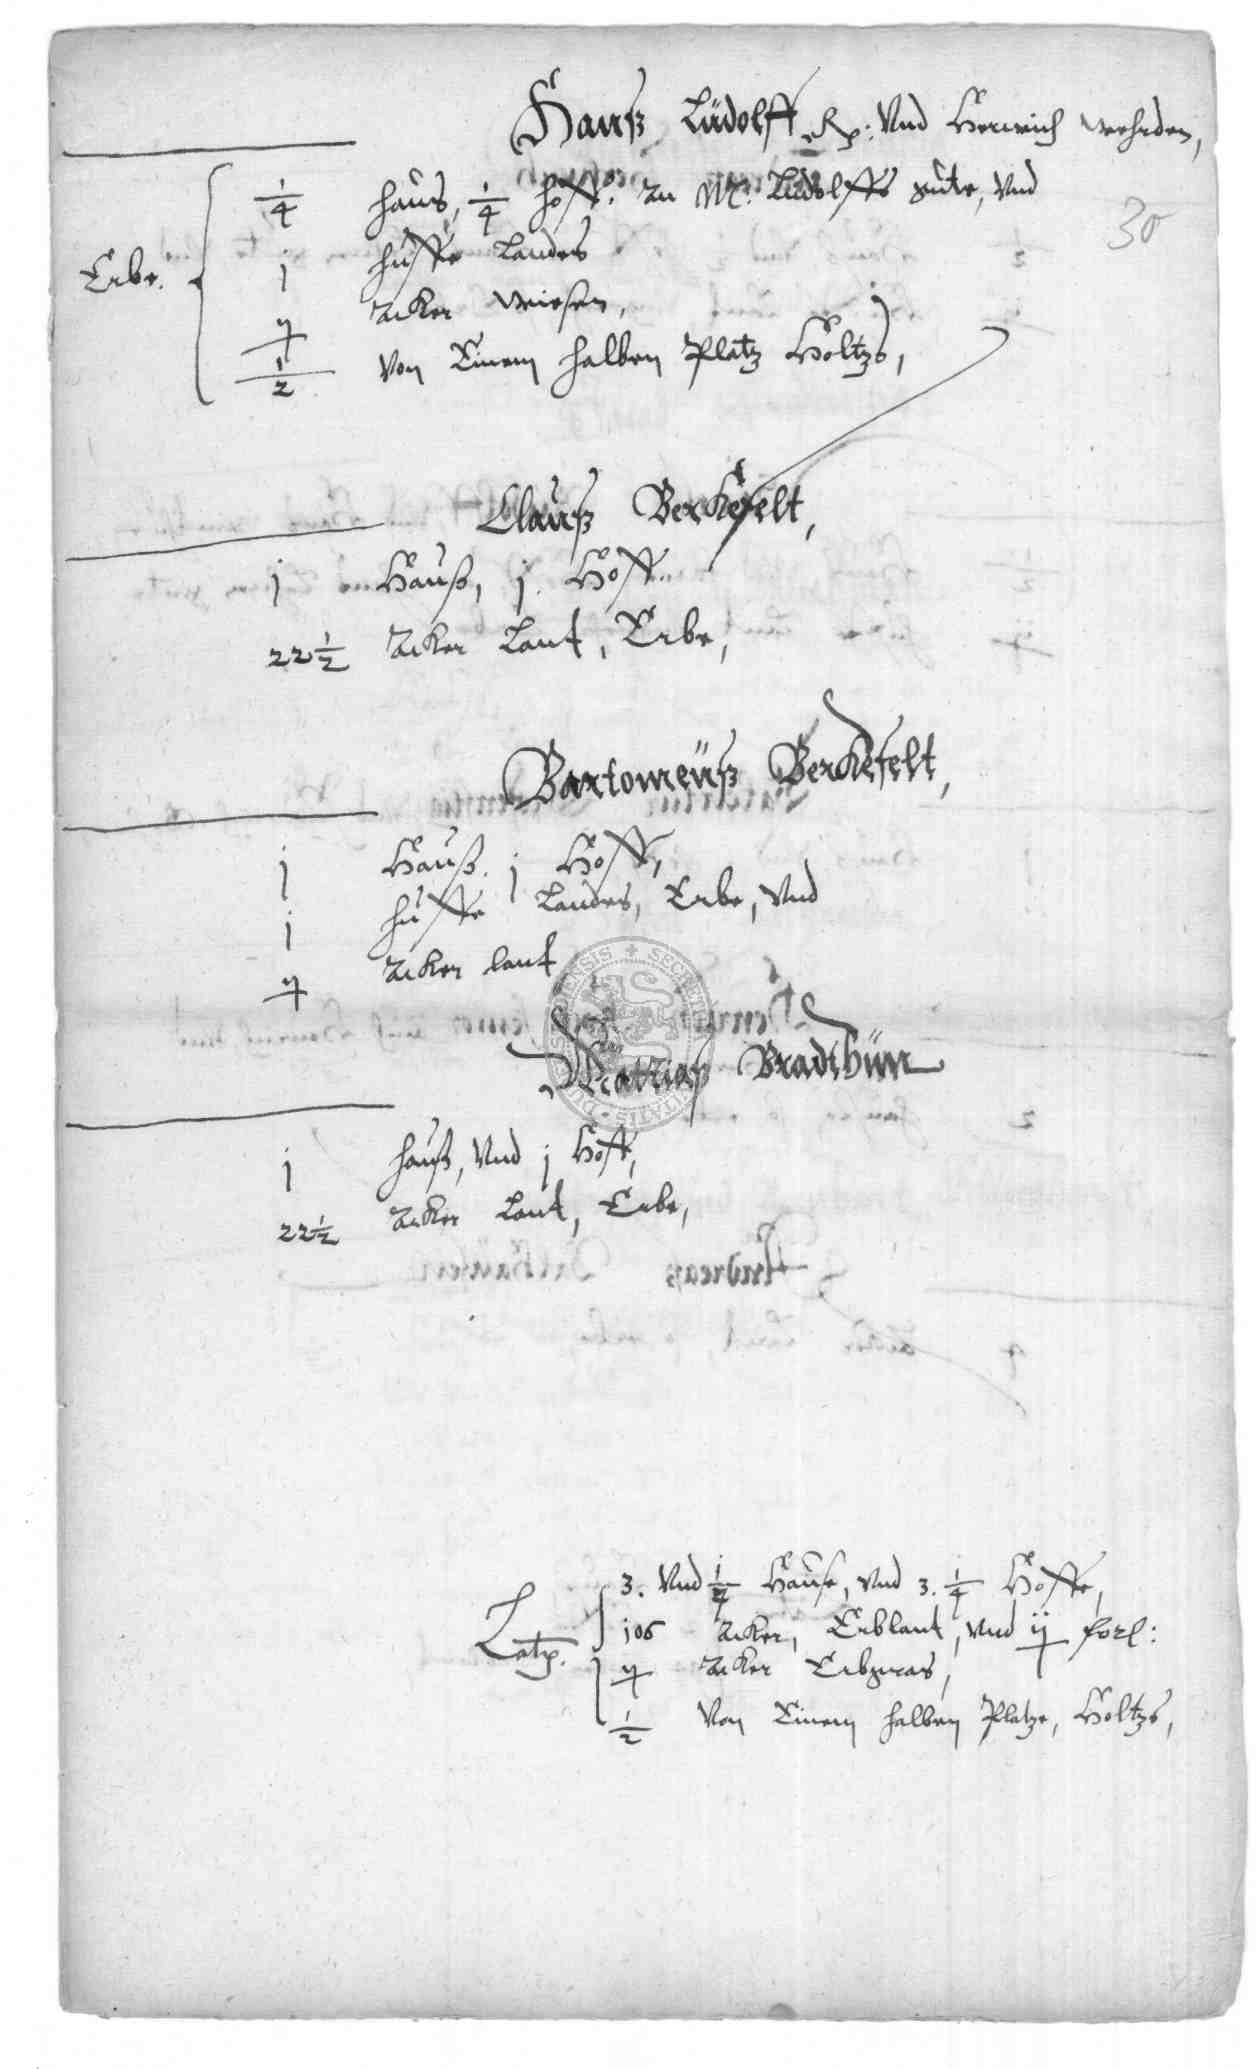 Hanß Lüdolff Rp: Vnd Henrich Wehrden,
30
Erbe.
1/4 hauß, 1/4 hoff. zu M: Lüdolffs gute, Vnd
j huffe Landes
ij acker Wiesen,
1/2 Von Einem halben Platz Holtzs,
Clauß Berkefelt,
j Hauß, j. Hoff.
22 1/2 acker Lant, Erbe,
Bartomeüß Berkefelt,
j Hauß. j Hoff,
j huffe Landes, Erbe, Vnd
ij acker lant
Mattias Bradthün
j hauß, Vnd j Hoff,
22 1/2 acker Lant, Erbe,
Latp.
3. Vnd 1/4 Hause, Vnd 3. 1/4 Hoffe,
106 acker, Erblant, Vnd ij forl:
ij acker Erbgras,
1/2 Von Einem halben Platze, Holtzs,